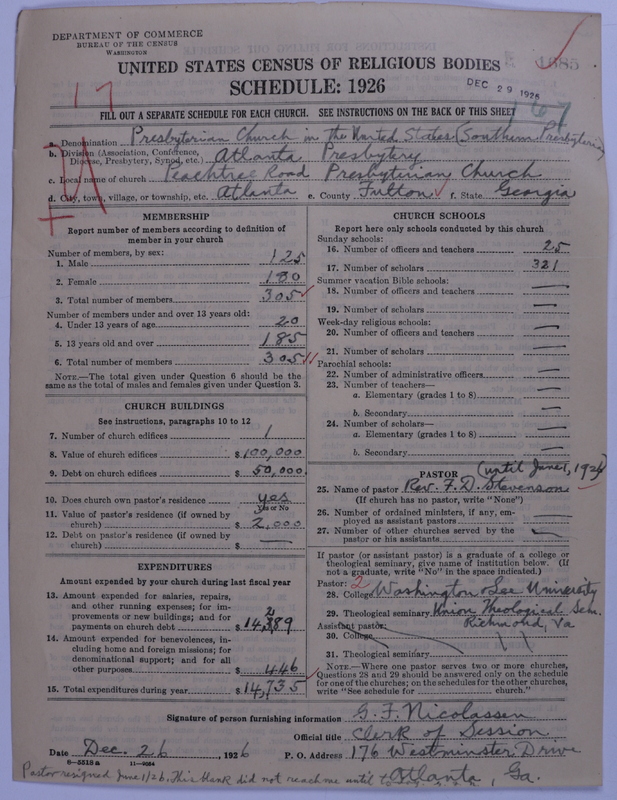 DEPARTMENT OF COMMERCE
BUREAU OF THE CENSUS
WASHINGTON
UNITED STATES CENSUS OF RELIGIOUS BODIES
SCHEDULE: 1926
DEC 29 1926
17
FILL OUT A SEPARATE SCHEDULE FOR EACH CHURCH. SEE INSTRUCTIONS ON THE BACK OF THIS SHEET
a. Denomination Presbyterian Church in the United States (Southern Presbyterian)
b. Division (Association, Conference, Diocese, Presbytery, Synod, etc.) Atlanta Presbytery
c. Local name of church Peachtree Road Presbyterian Church
d. City, town, village, or township, etc. Atlanta e. County Fulton f. State Georgia
MEMBERSHIP
Report number of members according to definition of
member in your church
Number of members, by sex:
1. Male 125
2. Female 180
3. Total number of members 305
Number of members under and over 13 years old:
4. Under 13 years of age 20
5. 13 years old and over 185
6. Total number of members 305
NOTE.—The total given under Question 6 should be the
same as the total of males and females given under Question 3.
CHURCH BUILDINGS
See instructions, paragraphs 10 to 12
7. Number of church edifices 1
8. Value of church edifices $ 100,000
9. Debt on church edifices $ 50,000.
10. Does church own pastor's residence yes
Yes or No
11. Value of pastor's residence (if owned by
church) $ 2,000
12. Debt on pastor's residence (if owned by
church) $ —
EXPENDITURES
Amount expended by your church during last fiscal year
13. Amount expended for salaries, repairs,
and other running expenses; for im-
provements or new buildings; and for
payments on church debt $ 14,289
14. Amount expended for benevolences, in-
cluding home and foreign missions; for
denominational support; and for all
other purposes $ 446
15. Total expenditures during year $ 14,735
CHURCH SCHOOLS
Report here only schools conducted by this church
Sunday schools:
16. Number of officers and teachers 25
17. Number of scholars 321
Summer vacation Bible schools:
18. Number of officers and teachers —
19. Number of scholars —
Week-day religious schools:
20. Number of officers and teachers —
21. Number of scholars —
Parochial schools:
22. Number of administrative officers —
23. Number of teachers—
a. Elementary (grades 1 to 8) —
b. Secondary —
24. Number of scholars—
a. Elementary (grades 1 to 8) —
b. Secondary —
PASTOR (until June 1, 1926)
25. Name of pastor Rev. F. D. Stevenson
(If church has no pastor, write "None")
26. Number of ordained ministers, if any, em-
ployed as assistant pastors —
27. Number of other churches served by the
pastor or his assistants —
If pastor (or assistant pastor) is a graduate of a college or
theological seminary, give name of institution below. (If
not a graduate, write "No" in the space indicated.)
Pastor: 2
28. College Washington & Lee University
29. Theological seminary Union Theological Sem.
Assistant pastor: Richmond, Va
30. College
31. Theological seminary
NOTE.—Where one pastor serves two or more churches,
Questions 28 and 29 should be answered only on the schedule
for one of the churches; on the schedules for the other churches,
write "See schedule for church."
Signature of person furnishing information G. F. Nicolassen
Official title Clerk of Session
Date Dec. 26, 1926 P. O. Address 176 Westminster Drive
8—5518a 11—9054
Atlanta, Ga.
Pastor resigned June 1/26. This blank did not reach me until